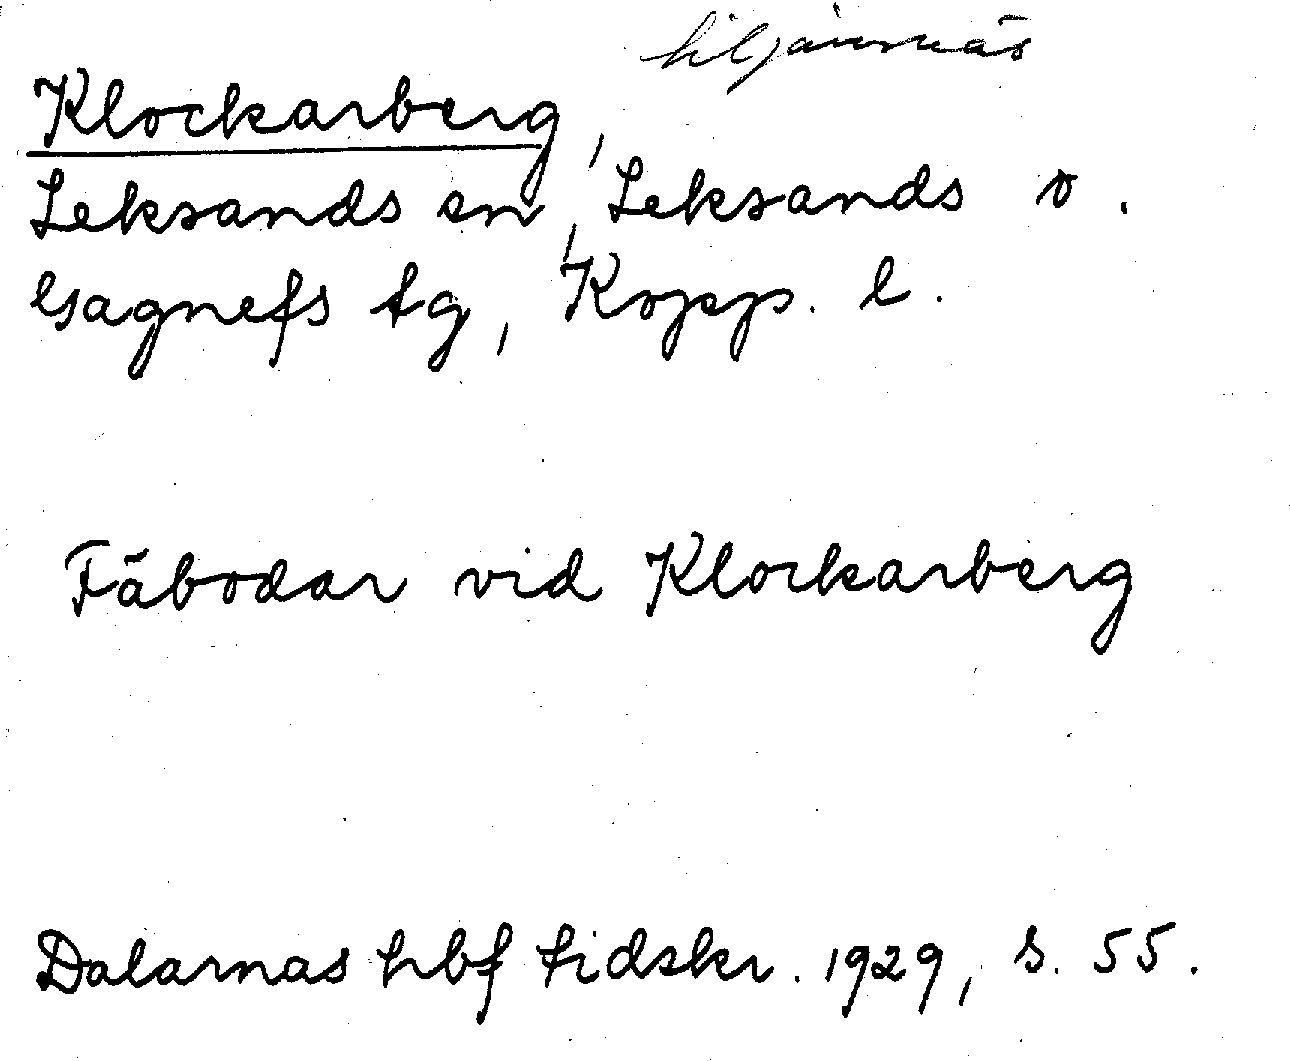 Siljansnäs
Klockarberg,
Leksands sn, Leksands o.
Gagnefs tg, Kopp. l.
Fäbodar vid Klockarberg
Dalarnas hbf tidskr. 1929, s. 55.